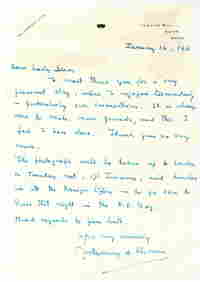 January 16, 195
Dear Lady
I must thank you for a very
pleasant stay, which I enjoyed tremendously
— particularly our conversations. It is always
nice to make new friends, and this I
feel I have done. Thank you so very
much.
The photograph will be taken up to London
on Tuesday next, 19 January, and handed
in at the Foreign Office — to go from to
that night in the Bag.
Kind regards to you both.
Yours very sincerely
Montgomery of Alamein